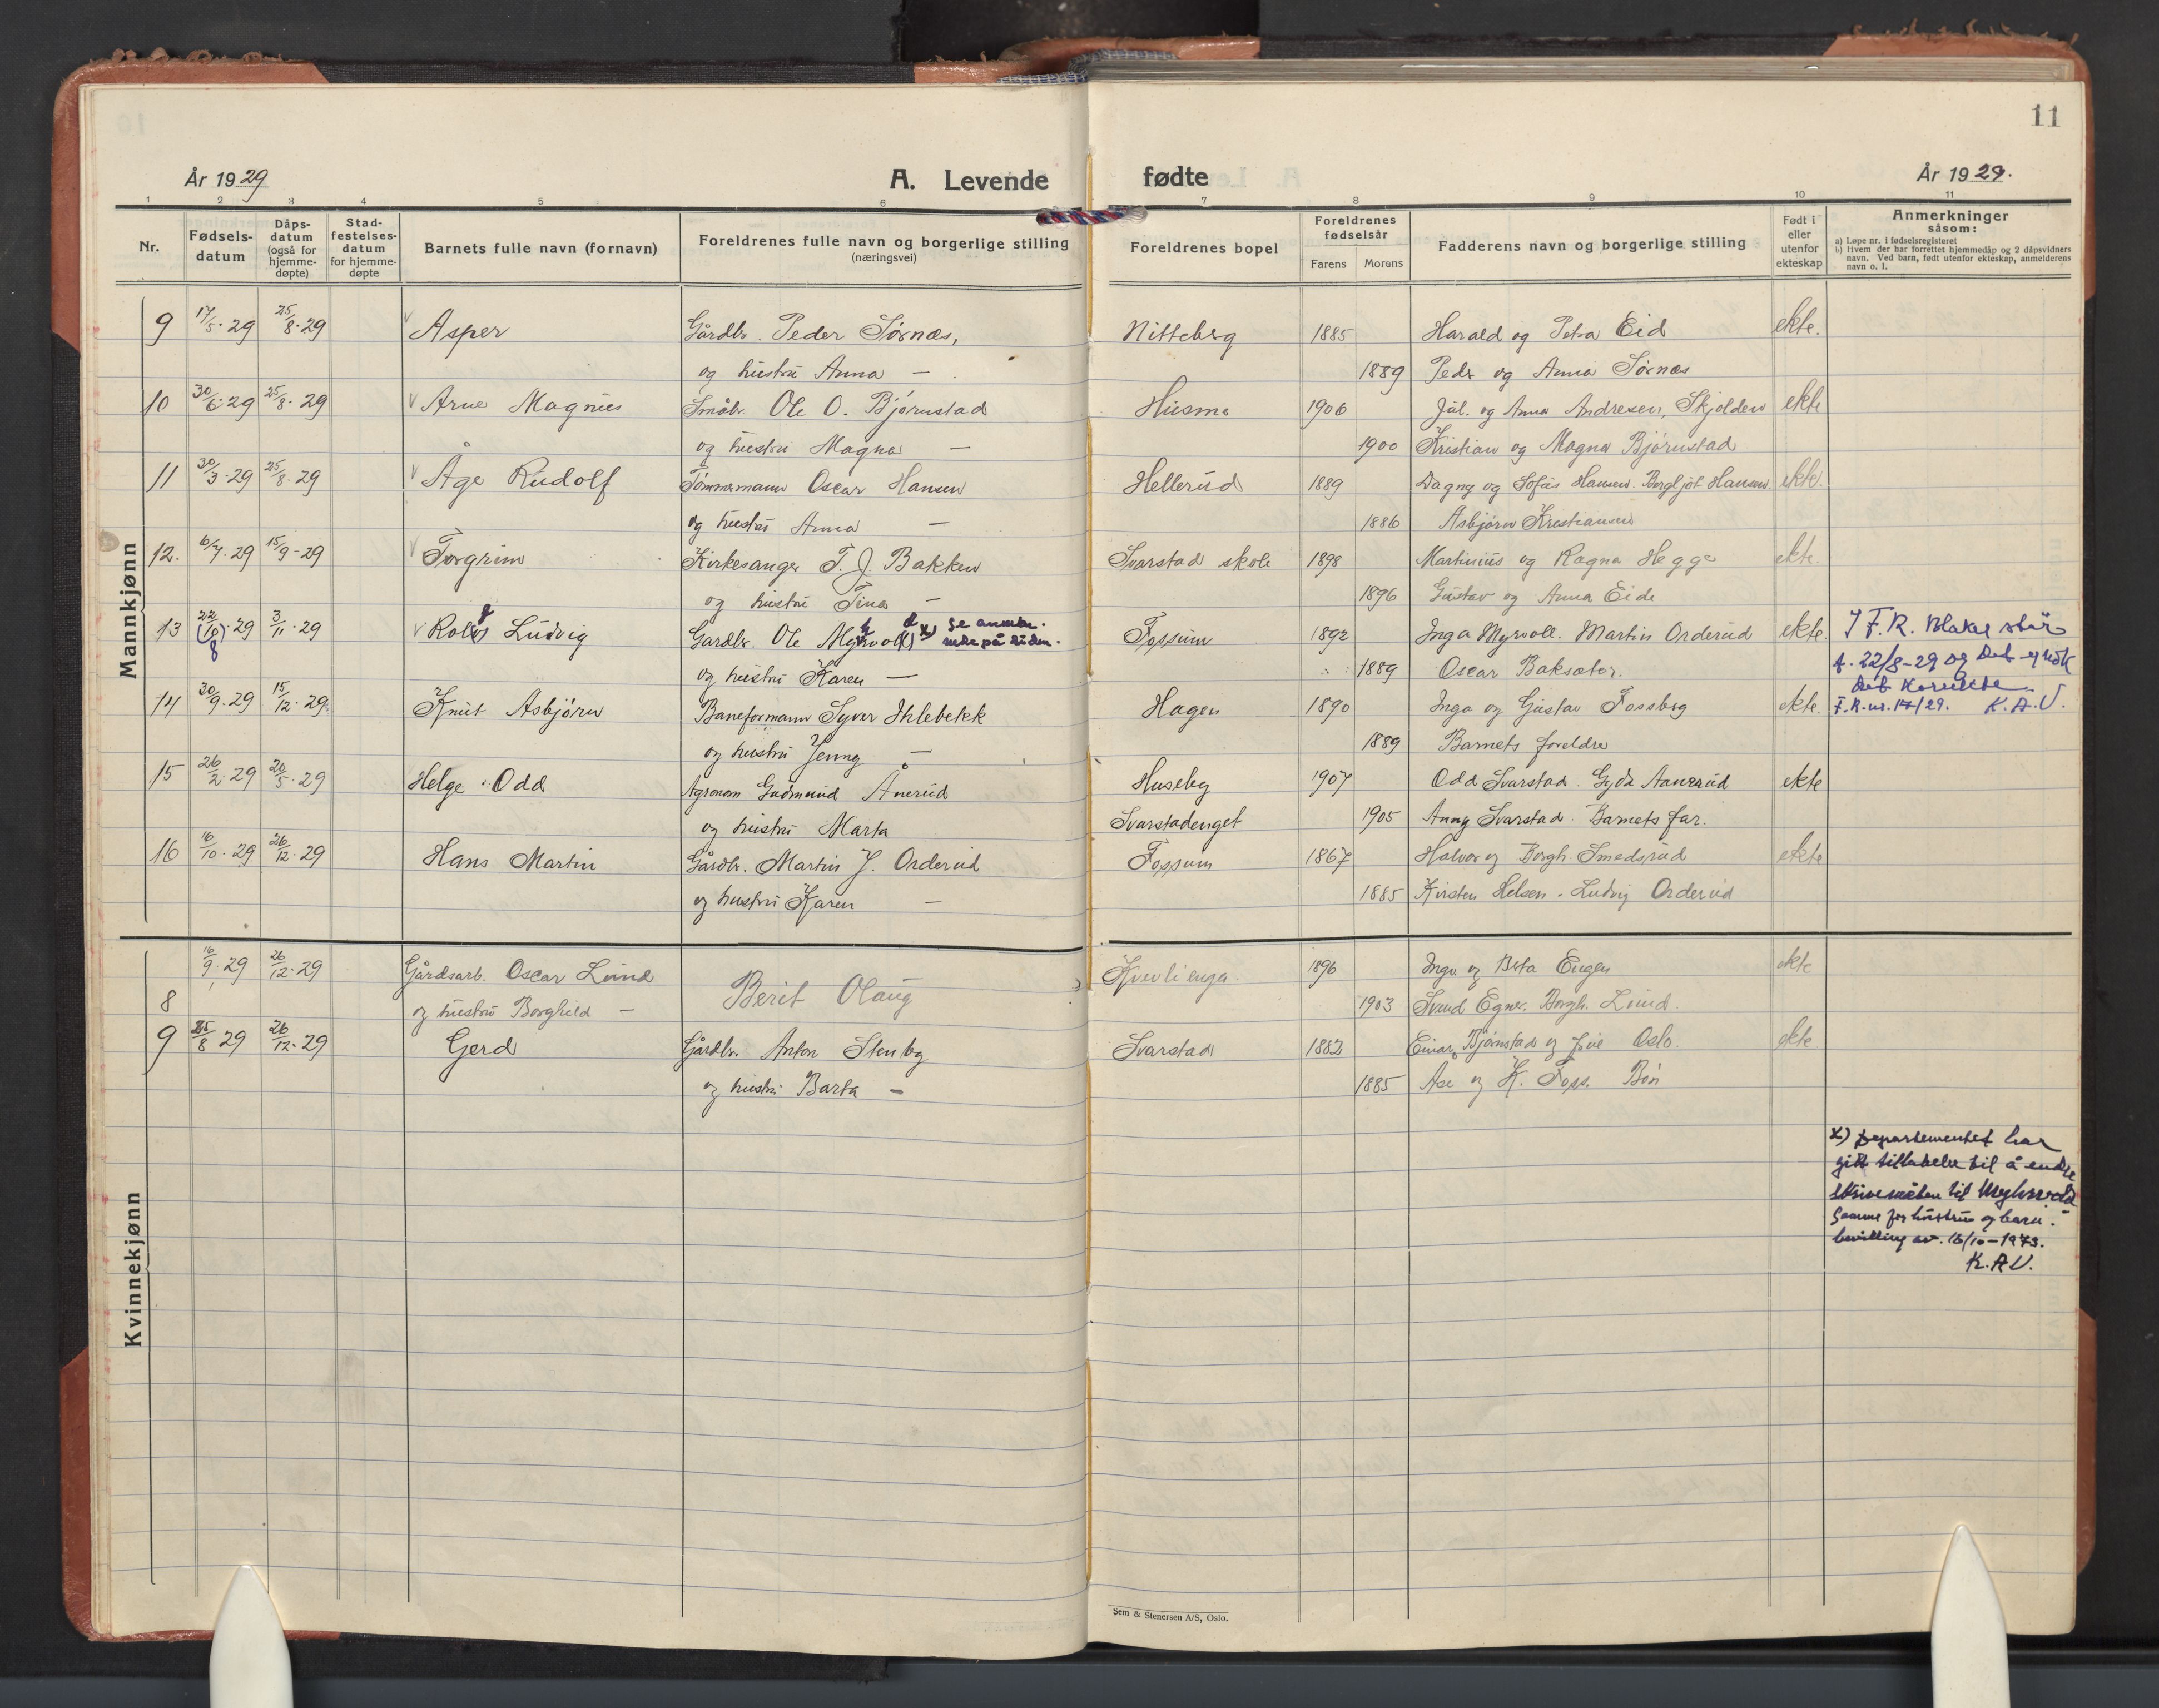 11
År 1929
A. Levende fødte
År 1929.
1 2 3 4 5 6 7 8 9 10 11
Nr.
Fødsels-
datum
Dåps-
datum
(også for
hjemme-
døpte)
Stad-
festelses-
datum
for hjemme-
døpte
Barnets fulle navn (fornavn)
Foreldrenes fulle navn og borgerlige stilling
(næringsvei)
Foreldrenes bopel
Foreldrenes
fødselsår
Farens Morens
Fadderens navn og borgerlige stilling
Født i
eller
utenfor
ekteskap
Anmerkninger
såsom:
a) Løpe nr. i fødselsregisteret
b) Hvem der har forrettet hjemmedåp og 2 dåpsvidners
navn. Ved barn, født utenfor ekteskap, anmelderens
navn o. l.
Mannkjønn
9 17/5-29 25/8-29 Asper Gårdbr. Peder Sørnæs, Nitteberg 1885 Harald og Petra Eid ekte.
og hustru Anna — 1889 Peder og Anna Sørnæs
10 30/6-29 25/8-29 Arne Magnus Småbr. Ole O. Bjørnstad Husmo 1906 Jul. og Anna Andresen, Skjolden ekte
og hustru Magna — 1900 Kristian og Magna Bjørnstad
11 30/3-29 25/8-29 Åge Rudolf Tømmermann Oscar Hansen Hellerud 1889 Dagny og Sofus Hansen. Bergljot Hansen. ekte.
og hustru Anna — 1886 Asbjørn Kristiansen
12. 6/7-29 15/9-29 Torgrim Kirkesanger T. J. Bakken Svarstad skole 1898 Martinius og Ragna Hegge ekte.
og hustru Tina — 1896 Gustav og Anna Eide
13 22/(10)8-29 3/11-29 Rolf Ludvig Gardbr. Ole Myhrvold x) Se anmerkn. nede på siden. Fossum 1892 Inga Myrvoll. Martin Orderud ekte. I F.R. Blaker står
og hustru Karen — 1889 Oscar Baksæter. f. 22/8-29 og det er nok
det korrekte.
14 30/9-29 15/12-29 Knut Asbjørn Baneformann Syver Ihlebekk Hagen 1890 Inga og Gustav Fossberg ekte. F.R. nr. 17/29. K.A.V.
og hustru Jenny — 1889 Barnets foreldre
15 26/2-29 20/5-29 Helge Odd Agronom Gudmund Ånerud Huseby 1907 Odd Svarstad. Gyda Aanerud ekte
og hustru Marta Svarstadenget 1905 Anny Svarstad. Barnets far.
16 16/10-29 26/12-29 Hans Martin Gårdbr. Martin J. Orderud Fossum 1867 Halvor og Borgh. Smedsrud ekte
og hustru Karen — 1885 Kirsten Helsen. Ludvig Orderud
Kvinnekjønn
8 16/9-29 26/12-29 Gårdsarb. Oscar Lund Berit Olaug 1896 Inga og Berta Engen ekte
og hustru Borghild — 1903 Svend Egner. Borgh. Lund.
9 25/8 29 26/12-29 Gerd Gårdbr. Anton Stenby Svarstad 1882 Einar Bjørnstad og frue Oslo. ekte
og hustru Barta — 1885 Åse og K. Foss. Bøn
x) Departementet har
gitt tillatelse til å endre
skrivemåten til Myhrvold
Samme for hustru og barn.
bevilling av. 16/10-1973.
K.A.V.
Sem & Stenersen A/S, Oslo.